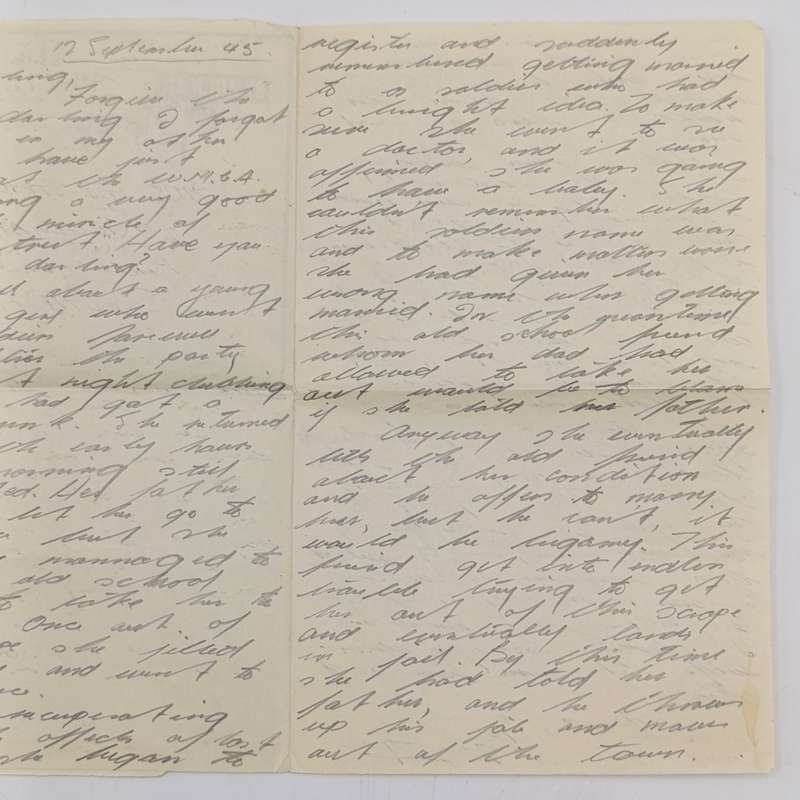 12 September 45.
ling,
Forgive the
darling I forgot
in my other
have just
at the Y.M.C.A.
ing a very good
miracle of
Have you
darling?
about a young
girl who went
farewell
the party
night clubbing
had got a
She returned
the early hours
morning still
Her father
let her go to
but she
mannaged to
old school
to take her to
Once out of
she jilled
and went to
recuperating
effects of last
she began to
register and suddenly
remembered getting married
to a soldier who had
a bright idea. To make
sure she went to see
a doctor, and it was
affirmed she was going
to have a baby. She
couldn't remember what
this soldiers name was
and to make matters worse
she had given her
wrong name when getting
married. In the meantime
this old school friend
whom her dad had
allowed to take her
out would be to blame
if she told her father.
Anyway she eventually
tells the old friend
about her condition
and he offers to marry
her, but he can't, it
would be bigamy. This
friend get into endless
trouble trying to get
her out of this scrape
and eventually lands
in jail. By this time
she had told her
father, and he throws
up his job and moves
out of the town.